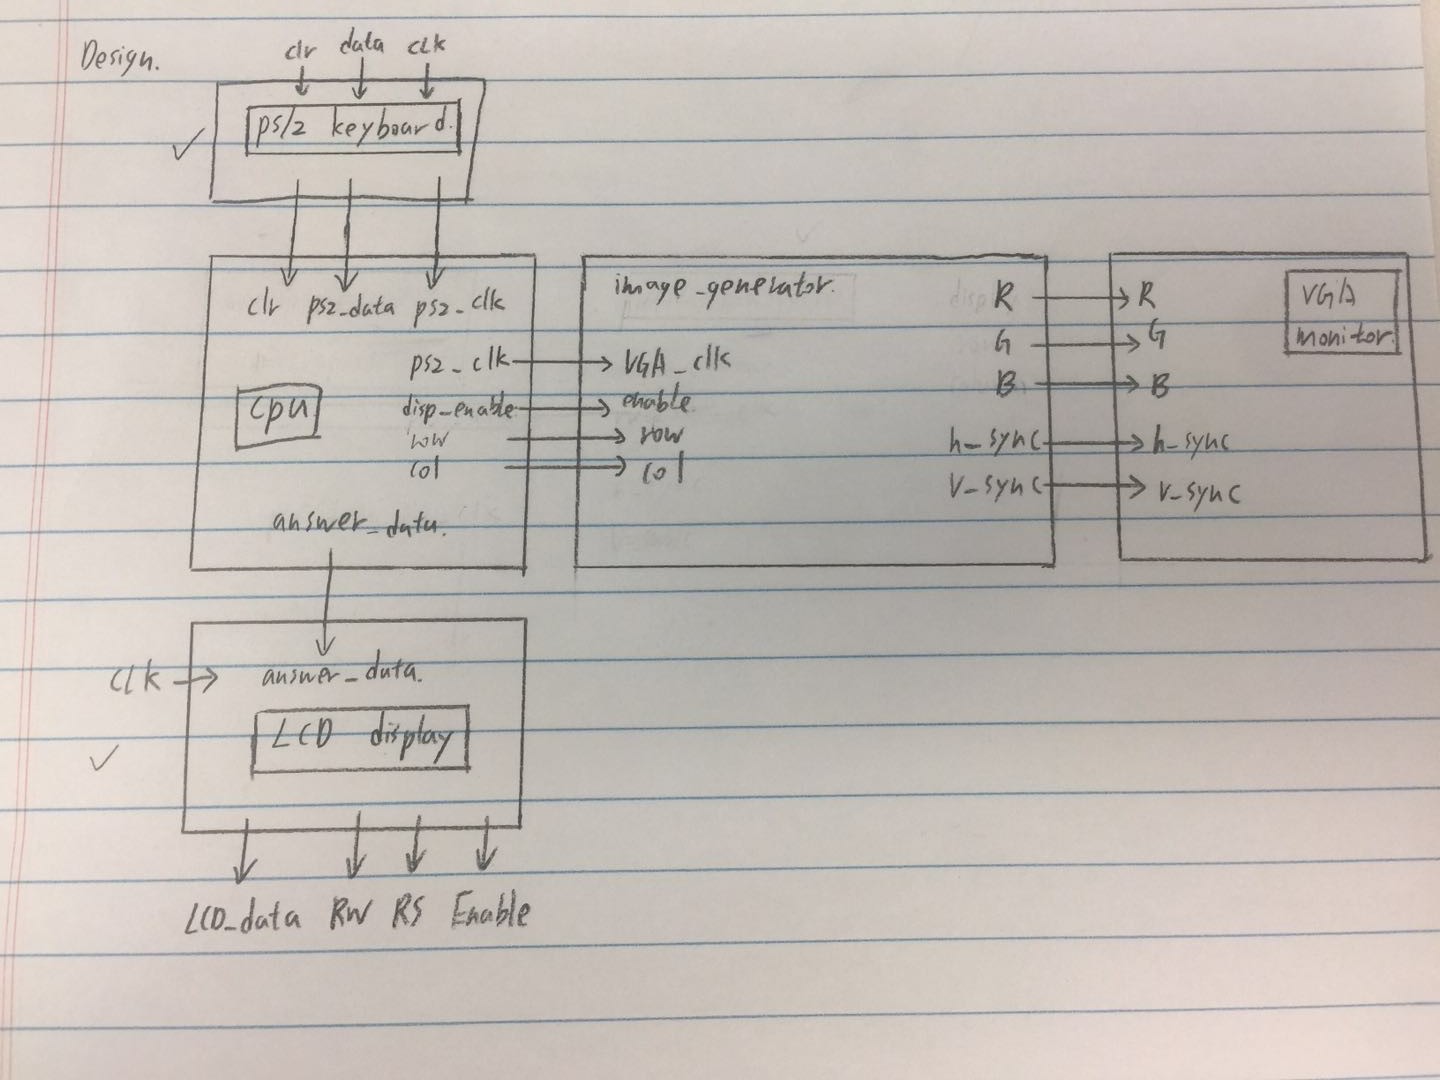 Design.
clr data CLK
ps/2 keyboard.
clr ps2_data ps2_clk
ps2_clk
cpu
disp_enable
row
col
answer_data.
image_generator.
VGA_clk
enable
row
col
R
G
B
h_sync
V_sync
R
G
B
h_sync
V_sync
VGA
monitor.
CLK
answer_data.
LCD display
LCD_data RW RS Enable